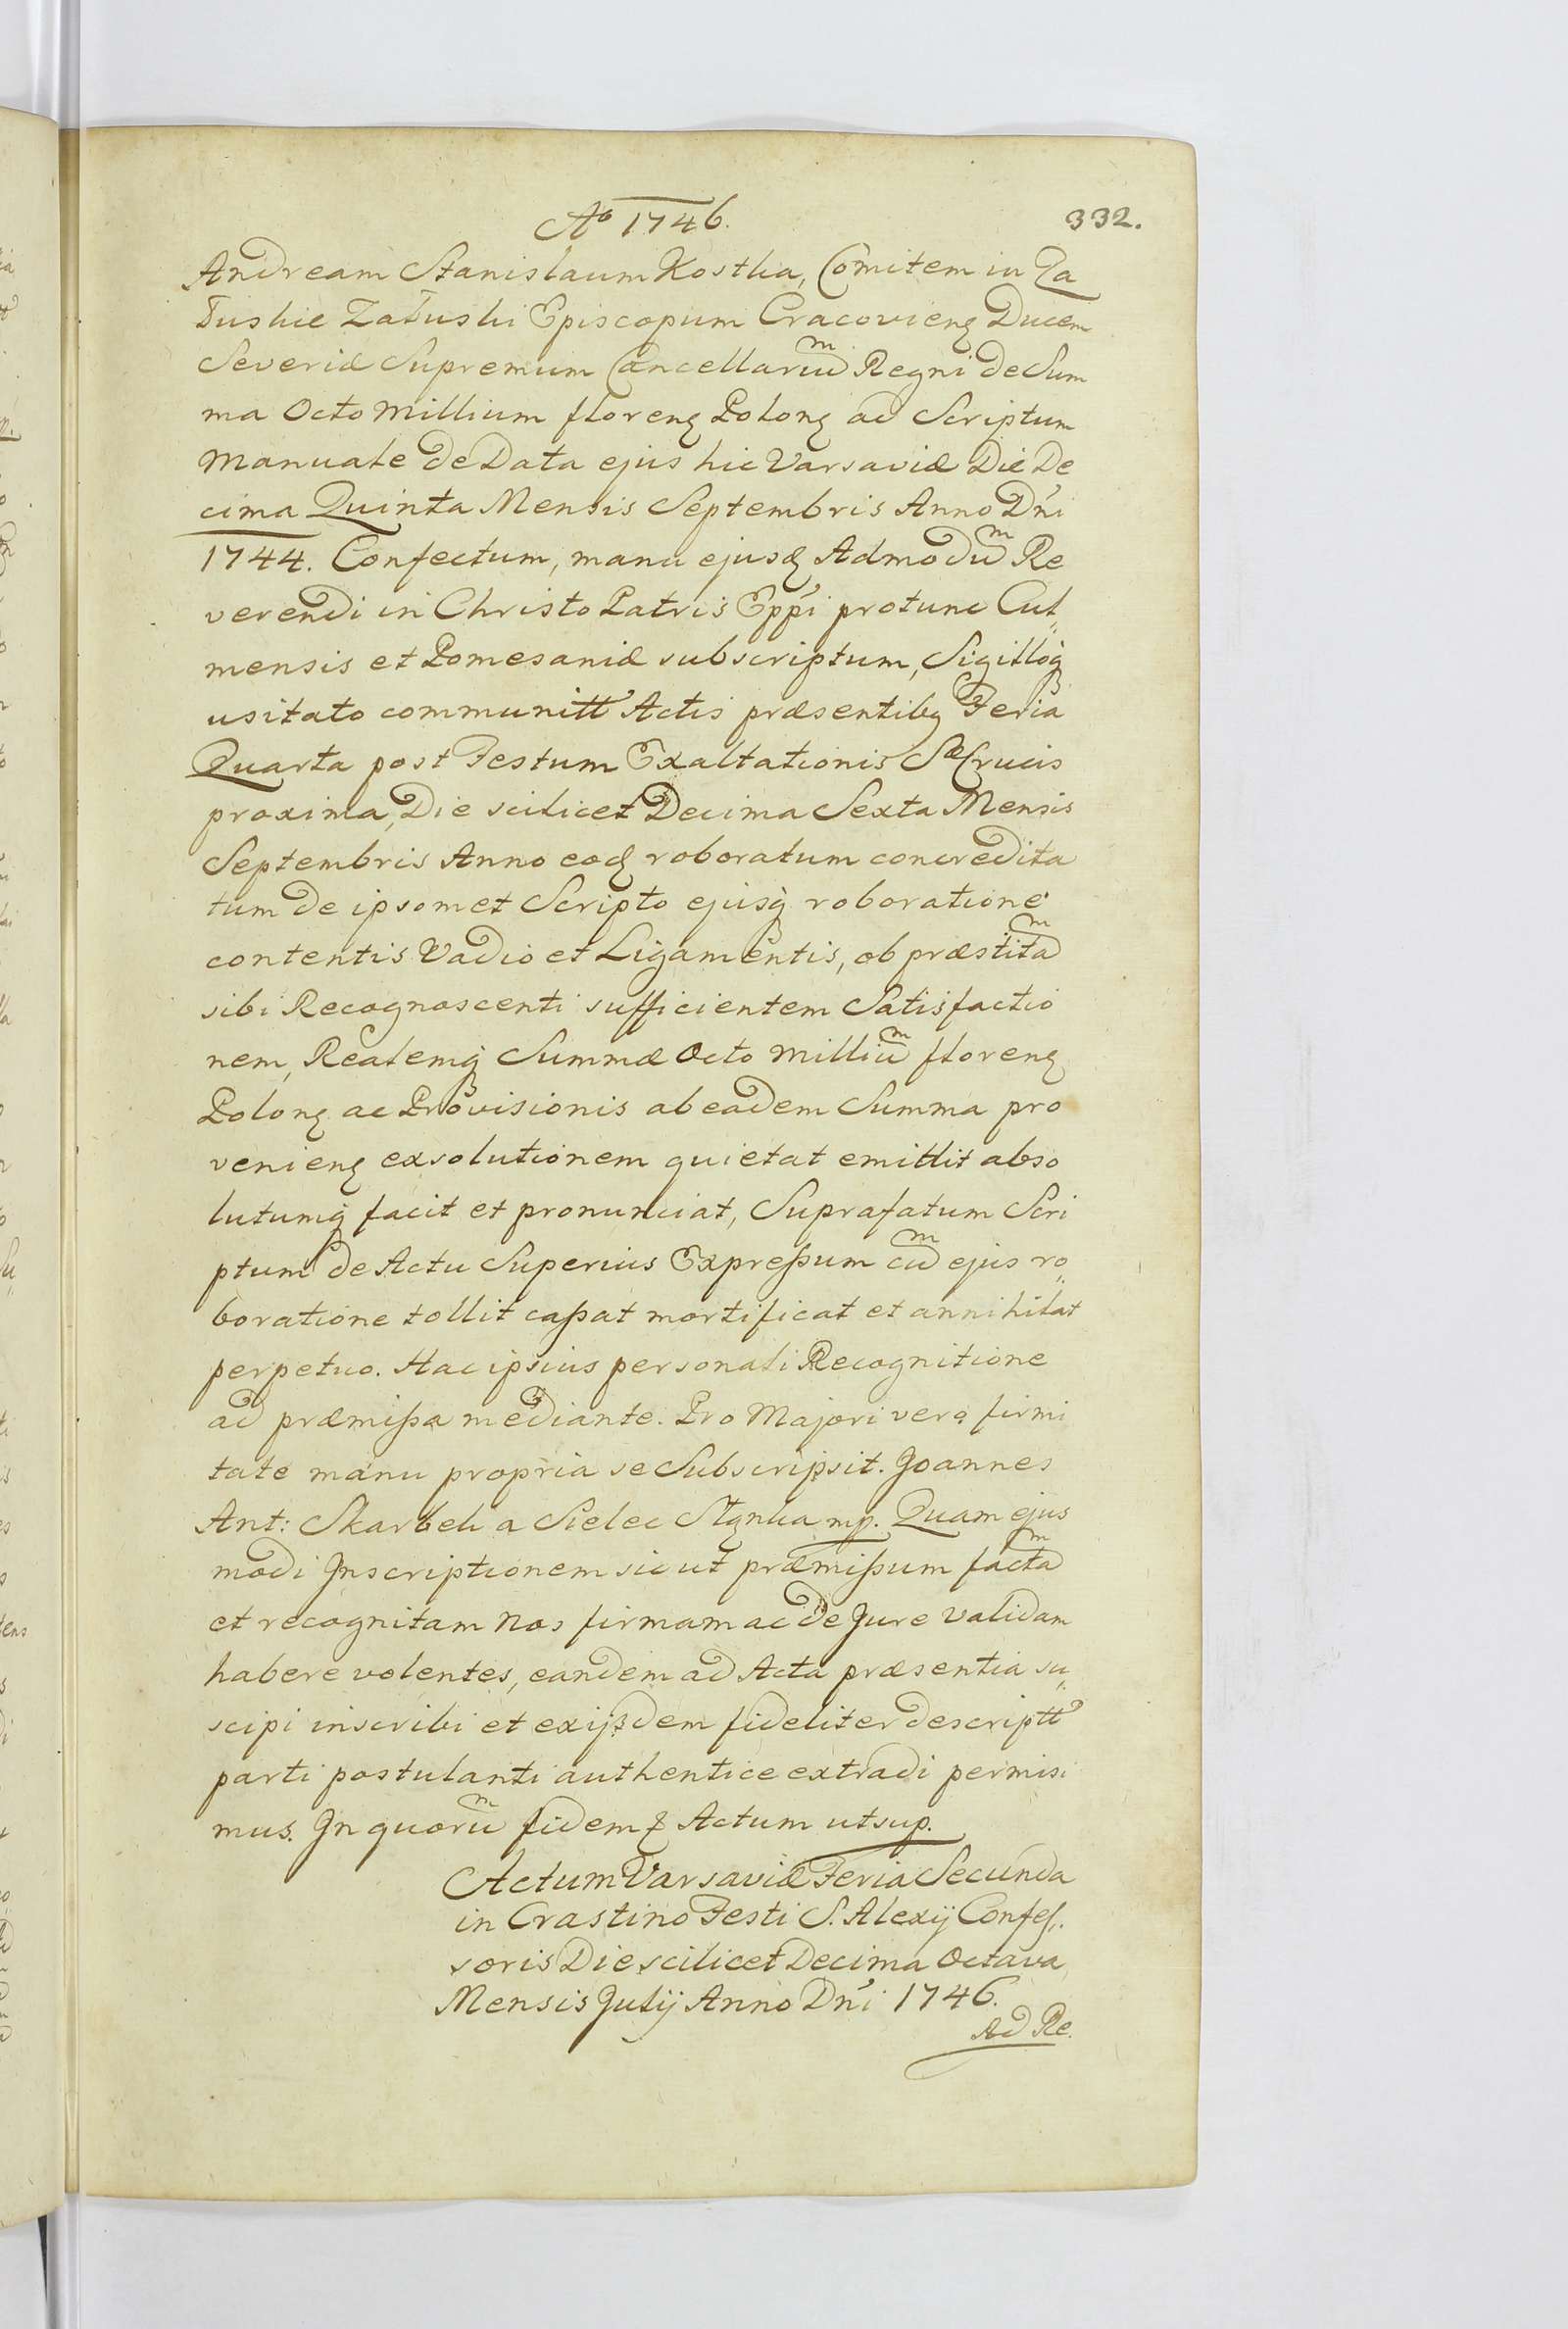 Aº 1746.
332.
Andream Stanislaum Kostka, Comitem in Za
łuskie Załuski Episcopum Cracovienę Ducem
Severiæ Supremum Cancellariũm Regni de Sum
ma Octo Millium florenę Polonę ad Scriptum
Manuale de Data ejus hic Varsaviæ Die De
cima Quinta Mensis Septembris Anno Dn̄i
1744. Confectum, manu ejusd Admodũm Re
verendi in Christo Patris Epp̄i protunc Cul„
mensis et Pomesaniæ subscriptum, Sigilloq̨
usitato communitt Actis præsentibq Feria
Quarta post Festum Exaltationis Sæ Crucis
proxima, Die scilicet Decima Sexta Mensis
Septembris Anno eod roboratum concredita
tum de ipsomet Scripto ejusq̨ roboratione
contentis Vadio et Ligamentis, ob præstitam
sibi Recognoscenti sufficientem Satisfactio
nem, Realemq̨ Summæ Octo Milliũm florenę
Polonę ac Provisionis ab eadem Summa pro
venienę exsolutionem quietat emittit abso
lutumq̨ facit et pronunciat, Suprafatum Scri
ptum de Actu Superius Expreßum cũm ejus ro„
boratione tollit caßat mortificat et annihilat
perpetuo. Hac ipsius personali Recognitione
ad præmißa mediante. Pro Majori vero firmi
tate manu propria se Subscripsit. Joannes
Ant: Skarbek a Sielec mp. Quam ejus
modi Inscriptionem sic ut præmißum factam
et recognitam Nos firmam ac de Jure Validam
habere volentes, eandem ad Acta præsentia su„
scipi inscribi et exijsdem fideliter descriptt
parti postulanti authentice extradi permisi
mus. In quorũm fidem Actum ut sup.
Actum Varsaviæ Feria Secunda
in Crastino Festi S. Alexij Confeſ„
soris Die scilicet Decima Octava
Mensis Julij Anno Dn̄i 1746.
Ad Re.